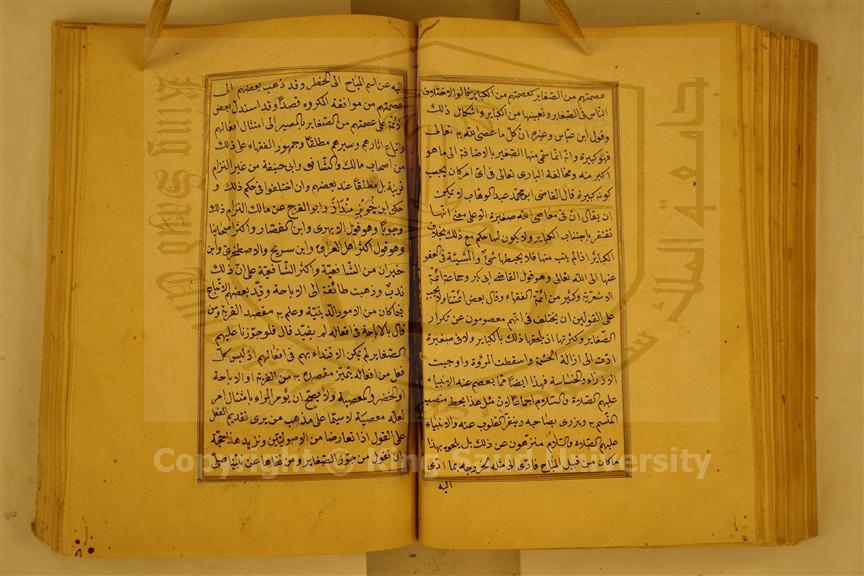 عصمتهم من الصغاير كعصمتهم من الكباير قالوا لاختلاف
الناس فى الصغاير وتعيينها من الكباير واشكال ذلك
وقول ابن عباس وغيره ان كل ما عصى الله به تعالى
فهو كبيرة وانه انما سمى منها الصغير بالاضافة الى ما هو
اكبر منه ومخالفة البارى تعالى فى اى امر كان يجب
كونه كبيرة قال القاضى ابو محمد عبد الوهاب لا يمكن
ان يقال ان فى معاصى الله صغيرة الا على معنى انها
تغتفر باجتناب الكباير ولا يكون لها حكم مع ذلك بخلاف
الكباير اذا لم يتب منها فلا يحبطها شئ والمشيئة فى العفو
عنها الى الله تعالى وهو قول القاضى ابى بكر وجماعة ائمة
الاشعرية وكثير من ائمة الفقهاء وقال بعض ائمتنا ولا يجب
على القولين ان يختلف فى انهم معصومون عن تكرار
الصغاير وكثرتها اذ يلحقها ذلك بالكباير ولا فى صغيرة
ادت الى ازالة الحشمة واسقطت المروة واوجبت
الازراء والخساسة فهذا ايضا مما يعصم عنه الانبياء
عليهم الصلاة والسلام اجماعا لان مثل هذا يحط منصب
المتسم به ويزرى بصاحبه وينفر القلوب عنه والانبياء
عليهم الصلاة والسلام منزهون عن ذلك بل يلحق بهذا
ما كان من قبيل المباح فادى الى مثله لخروجه بما ادى
اليه
اليه عن اسم المباح الى الحظر وقد ذهب بعضهم الى
عصمتهم من مواقعة المكروه قصدا وقد استدل بعض
الائمة على عصمتهم من الصغاير بالمصير الى امتثال افعالهم
واتباع اثارهم وسيرهم مطلقا وجمهور الفقهاء على ذلك
من اصحاب مالك والشافعى وابى حنيفة من غير التزام
قرينة بل مطلقا عند بعضهم وان اختلفوا فى حكم ذلك و
حكى ابن خويز منداذ وابو الفرج عن مالك التزام ذلك
وجوبا وهو قول الابهرى وابن القصار واكثر اصحابنا
وهو قول اكثر اهل العراق وابن سريج والاصطخرى وابن
خيران من الشافعية واكثر الشافعية على ان ذلك
ندب وذهبت طائفة الى الاباحة وقيد بعضهم الاتباع
فيما كان من الامور الدينية وعلم به مقصد القربة ومن
قال بالاباحة فى افعاله لم يقيد قال فلو جوزنا عليهم
الصغاير لم يكن الاقتداء بهم فى افعالهم اذ ليس كل
فعل من افعاله يتميز مقصده به من القربة او الاباحة
او الحضر والمعصية ولا يصح ان يؤمر المراء بامتثال امر
لعله معصية لا سيما على مذهب من يرى تقديم الفعل
على القول اذا تعارضا من الاصوليين ونزيد هذا حجة
بان نقول من جوز الصغاير ومن نفاها عن نبينا صلى
Copyright © King Saud University
King Saud University
جامعة الملك سعود